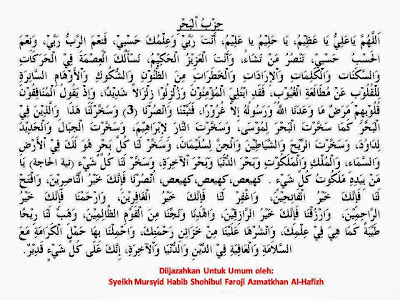 حِزْبُ الْبَحْرِ
اَللَّهُمَّ يَاعَلِيُّ يَا عَظِيْمُ، يَا حَلِيْمُ يَا عَلِيْمُ، أَنْتَ رَبِّيْ وَعِلْمُكَ حَسْبِيْ، فَنِعْمَ الرَّبُّ رَبِّيْ، وَنِعْمَ
الْحَسْبُ حَسْبِيْ، تَنْصُرُ مَنْ تَشَاءُ، وَأَنْتَ الْعَزِيْزُ الْحَكِيْمُ، نَسْأَلُكَ الْعِصْمَةَ فِي الْحَرَكَاتِ
وَالسَّكَنَاتِ وَالْكَلِمَاتِ وَالْإِرَادَاتِ وَالْخَطَرَاتِ مِنَ الظُّنُوْنِ وَالشُّكُوْكِ وَالْأَوْهَامِ السَّاتِرَةِ
لِلْقُلُوْبِ عَنْ مُطَالَعَةِ الْغُيُوْبِ، فَقَدِ ابْتُلِيَ الْمُؤْمِنُوْنَ وَزُلْزِلُوْا زِلْزَالًا شَدِيْدًا، وَإِذْ يَقُوْلُ الْمُنَافِقُوْنَ
قُلُوْبِهِمْ مَرَضٌ مَا وَعَدَنَا اللهُ وَرَسُوْلُهُ إِلَّا غُرُوْرًا، فَثَبِّتْنَا وَانْصُرْنَا (3) وَسَخِّرْ لَنَا هَذَا وَالَّذِيْنَ فِيْ
الْبَحْرَ كَمَا سَخَّرْتَ الْبَحْرَ لِمُوْسَى، وَسَخَّرْتَ النَّارَ لِإِبْرَاهِيْمَ، وَسَخَّرْتَ الْجِبَالَ وَالْحَدِيْدَ
لِدَاوُدَ، وَسَخَّرْتَ الرِّيْحَ وَالشَّيَاطِيْنَ وَالْجِنَّ لِسُلَيْمَانَ، وَسَخِّرْ لَنَا كُلَّ بَحْرٍ هُوَ لَكَ فِي الْأَرْضِ
وَالسَّمَاءِ، وَالْمُلْكِ وَالْمَلَكُوْتِ وَبَحْرَ الدُّنْيَا وَبَحْرَ الْآخِرَةِ، وَسَخِّرْ لَنَا كُلَّ شَيْءٍ (نية الحاجة) يَا
مَنْ بِيَدِهِ مَلَكُوْتُ كُلِّ شَيْءٍ . كهيعص، كهيعص، كهيعص، اُنْصُرْنَا فَإِنَّكَ خَيْرُ النَّاصِرِيْنَ، وَافْتَحْ
لَنَا فَإِنَّكَ خَيْرُ الْفَاتِحِيْنَ، وَاغْفِرْ لَنَا فَإِنَّكَ خَيْرُ الْغَافِرِيْنَ، وَارْحَمْنَا فَإِنَّكَ خَيْرُ
الرَّاحِمِيْنَ، وَارْزُقْنَا فَإِنَّكَ خَيْرُ الرَّازِقِيْنَ، وَاهْدِنَا وَنَجِّنَا مِنَ الْقَوْمِ الظَّالِمِيْنَ، وَهَبْ لَنَا رِيْحًا
طَيِّبَةً كَمَا هِيَ فِيْ عِلْمِكَ، وَانْشُرْهَا عَلَيْنَا مِنْ خَزَائِنِ رَحْمَتِكَ، وَاحْمِلْنَا بِهَا حَمْلَ الْكَرَامَةِ مَعَ
السَّلَامَةِ وَالْعَافِيَةِ فِي الدِّيْنِ وَالدُّنْيَا وَالْآخِرَةِ، إِنَّكَ عَلَى كُلِّ شَيْءٍ قَدِيْرٌ.
Diijazahkan Untuk Umum oleh:
Syeikh Mursyid Habib Shohibul Faroji Azmatkhan Al-Hafizh